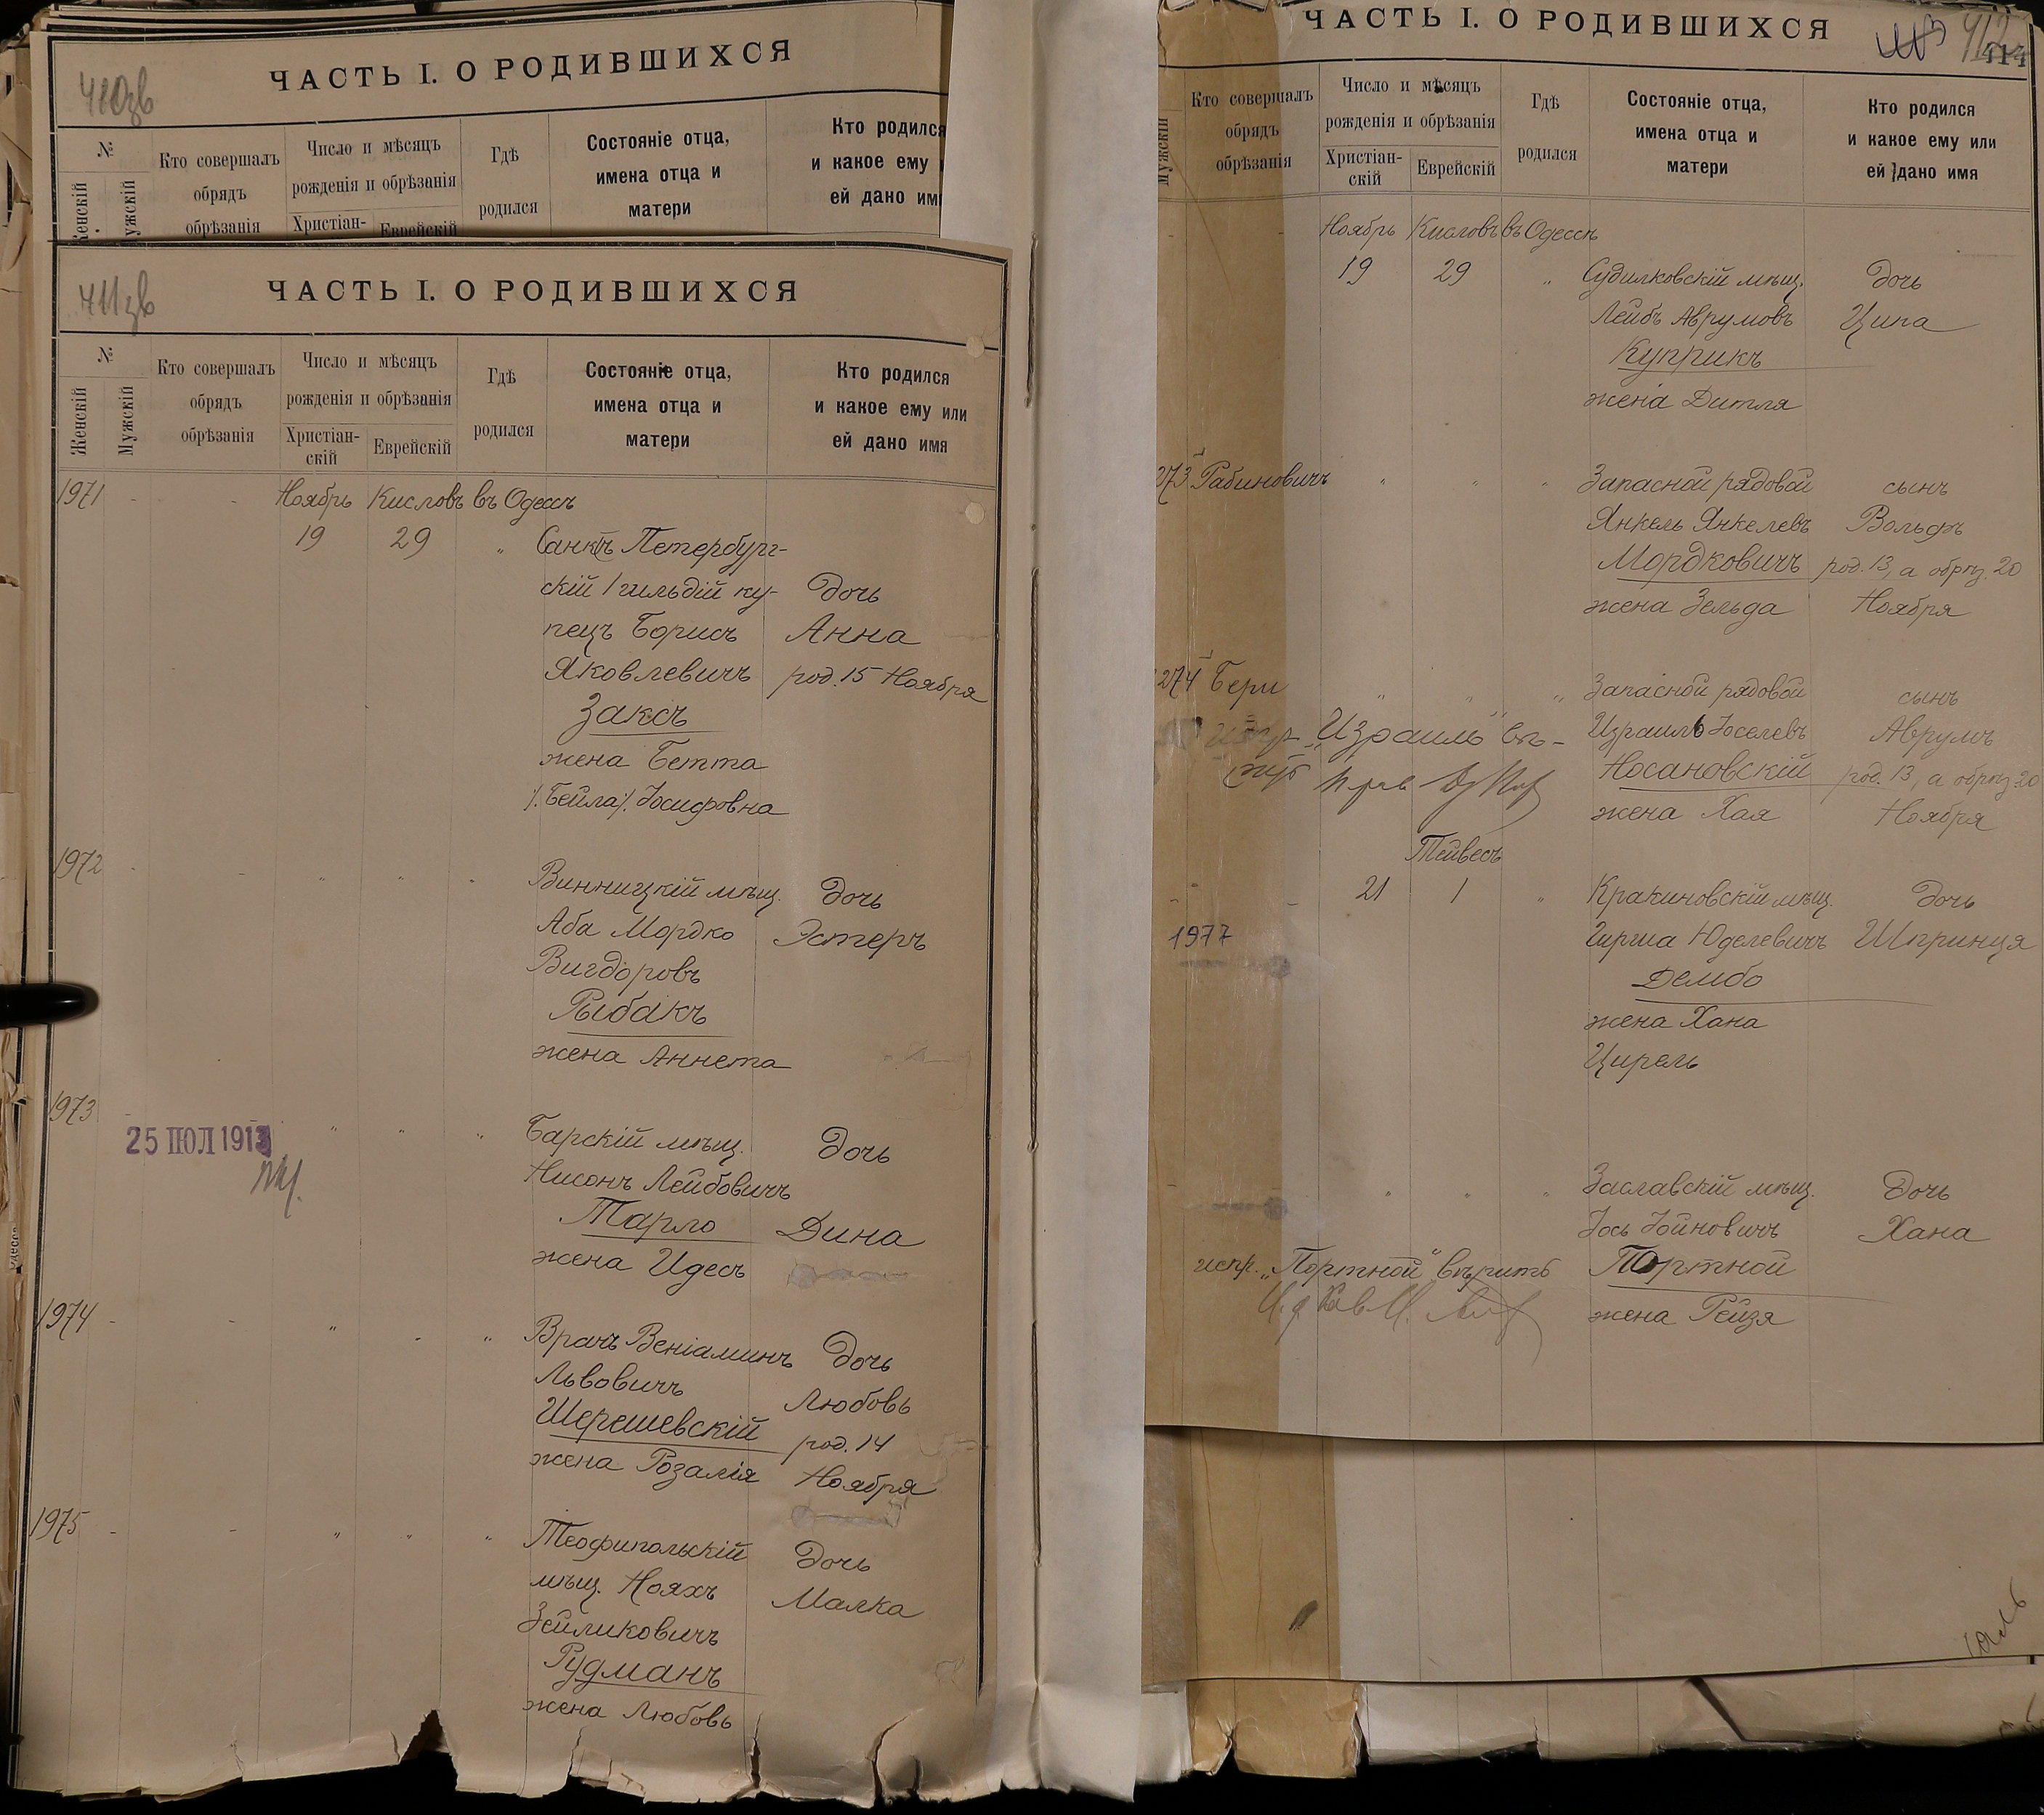 ЧАСТЬ I. О РОДИВШИХСЯ
410зв
№
Женскій
Мужскій
Кто совершалъ
обрядъ
обрѣзанія
Число и мѣсяцъ
рожденія и обрѣзанія
Христіан-
Еврейскій
Гдѣ
родился
Состояніе отца,
имена отца и
матери
Кто родился
и какое ему
ей дано имя
ЧАСТЬ I. О РОДИВШИХСЯ
411зв
№
Женскій
Мужскій
Кто совершалъ
обрядъ
обрѣзанія
Число и мѣсяцъ
рожденія и обрѣзанія
Христіан-
скій
Еврейскій
Гдѣ
родился
Состояніе отца,
имена отца и
матери
Кто родился
и какое ему или
ей дано имя
1971 - - Ноябрь Кисловъ въ Одессѣ
19 29 " Санктъ Петербург-
скій 1 гильдій ку- дочь
пецъ Борисъ Анна
Яковлевичъ род. 15 Ноября
Заксъ
жена Бетта
/.Бейла/. Іосифовна
1972 - - " " " Винницкій мѣщ. дочь
Аба Мордко Эстеръ
Вигдоровъ
Рыбакъ
жена Аннета
1973 " " " Барскій мѣщ. дочь
25 ІЮЛ 1913
Нисонъ Лейбовичъ
Тарло Дина
жена Идесъ
1974 - - " " " Врачъ Веніаминъ дочь
Львовичъ Любовь
Шерешевскій род. 14
жена Розалія Ноября
1975 - - " " " Теофипольскій дочь
мѣщ. Нояхъ Малка
Зейликовичъ
Рудманъ
жена Любовь
ЧАСТЬ I. О РОДИВШИХСЯ
412
414
Мужскій
Кто совершалъ
обрядъ
обрѣзанія
Число и мѣсяцъ
рожденія и обрѣзанія
Христіан-
скій
Еврейскій
Гдѣ
родился
Состояніе отца,
имена отца и
матери
Кто родился
и какое ему или
ей дано имя
Ноябрь Кисловъ въ Одессѣ
19 29 " Судилковскій мѣщ. дочь
Лейбъ Аврумовъ Ципа
Куприкъ
жена Дитля
273 Рабиновичъ " " " Запасной рядовой сынъ
Янкель Янкелевъ Вольфъ
Мордковичъ род. 13, а обрѣз. 20
жена Зельда Ноября
274 Бери " " " Запасной рядовой сынъ
"Израиль" вѣ- Израиль Іоселевъ Аврумъ
Носановскій род. 13, а обрѣз. 20
жена Хая Ноября
Тейвесъ
21 1 " Кракиновскій мѣщ. дочь
1977 Гирша Юделевичъ Шпринця
Дембо
жена Хана
Цирель
" " " Заславскій мѣщ. дочь
Іось Іойновичъ Хана
испр. "Портной" вѣрить Портной
жена Рейзя